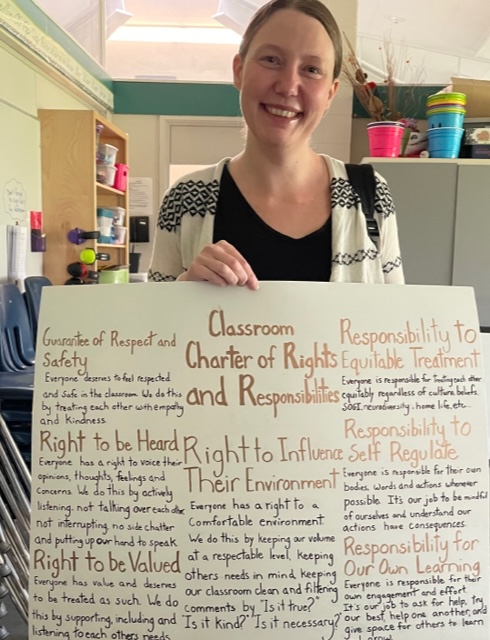 Classroom
Charter of Rights
and Responsibilities
Guarantee of Respect and
Safety
Everyone deserves to feel respected
and Safe in the classroom. We do this
by treating each other with empathy
and Kindness.
Right to be Heard
Everyone has a right to voice their
opinions, thoughts, feelings and
concerns. We do this by actively
listening, not talking over each other,
not interrupting, no side chatter
and putting up our hand to speak.
Right to be Valued
Everyone has value and deserves
to be treated as such. We do
this by supporting, including and
listening to each others needs
Right to Influence
Their Environment
Everyone has a right to a
Comfortable environment.
We do this by keeping our volume
at a respectable level, keeping
others needs in mind, keeping
our classroom clean and filtering
comments by "Is it true?"
"Is it kind?" "Is it necessary?"
Responsibility to
Equitable Treatment
Everyone is responsible for treating each other
equitably regardless of culture, beliefs,
SOGI, neurodiversity, home life, etc...
Responsibility to
Self Regulate
Everyone is responsible for their own
bodies, words and actions whenever
possible. It's our job to be mindful
of ourselves and understand our
actions have consequences.
Responsibility for
Our Own Learning
Everyone is responsible for their
own engagement and effort.
It's our job to ask for help, try
our best, help one another, and
give space for others to learn